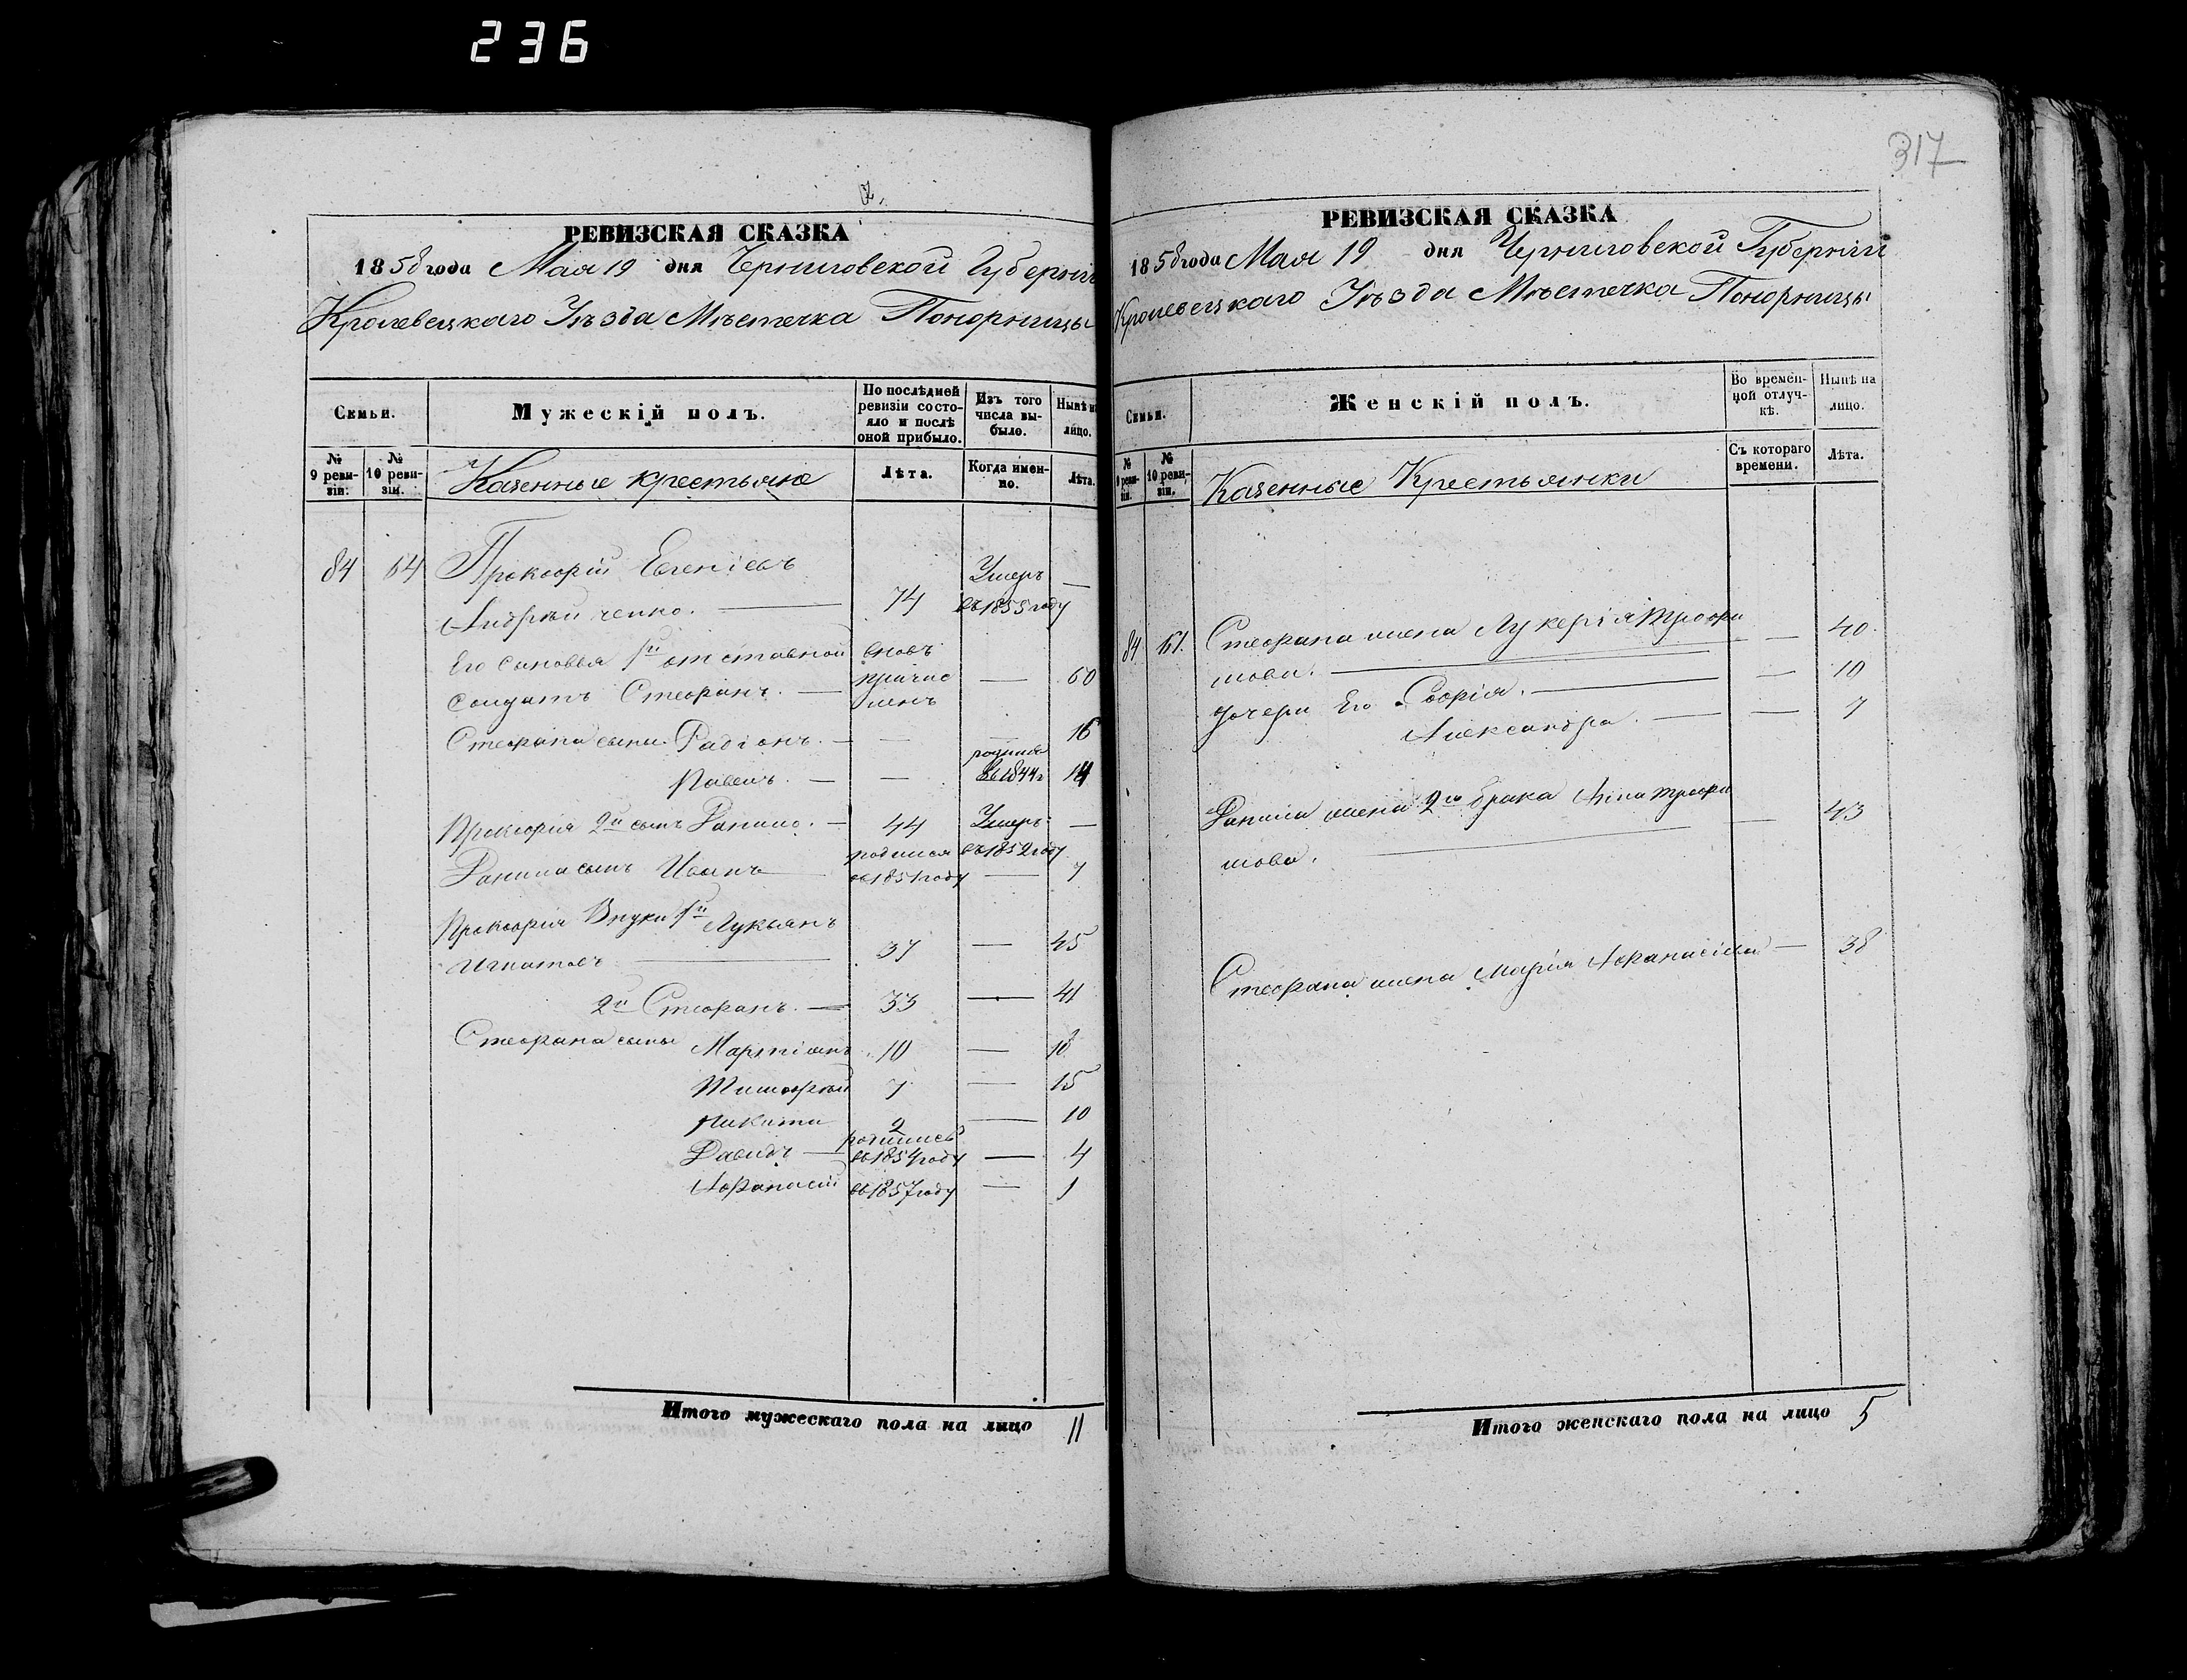 236
317
РЕВИЗСКАЯ СКАЗКА
1858 года Мая 19 дня Черниговской Губерніи
Кролевецкаго Уѣзда Мѣстечка Понорницы
Семьи.
Мужескій полъ.
По послѣдней ревизіи состояло и послѣ оной прибыло.
Изъ того числа выбыло.
Нынѣ на лицо.
№ 9 ревизіи.
№ 10 ревизіи.
Казенные крестьяне
Лѣта.
Когда именно.
Лѣта.
84 64 Прокофій Евгеніевъ
Андрѣйченко. — 74 Умеръ въ 1855 году —
Его сыновья 1й отставной
солдатъ Стефанъ. — вновь причисленъ — 60
Стефана сыны Радіонъ. — — — 16
Павелъ. — — родился въ 1844 г 14
Прокофія 2й сынъ Данило. — 44 Умеръ въ 1852 году —
Данила сынъ Иванъ родился въ 1851 году — 7
Прокофія Внуки 1й Лукьянъ
Игнатовъ — 37 — 45
2й Стефанъ. — 33 — 41
Стефана сыны Мартіянъ 10 — 18
Тимофѣй 7 — 15
Никита 2 — 10
Давидъ — родились въ 1854 году — 4
Афанасій въ 1857 году — 1
Итого мужескаго пола на лицо 11
РЕВИЗСКАЯ СКАЗКА
1858 года Мая 19 дня Черниговской Губерніи
Кролевецкаго Уѣзда Мѣстечка Понорницы
Семьи.
Женскій полъ.
Во временной отлучкѣ.
Нынѣ на лицо.
№ 9 ревизіи.
№ 10 ревизіи.
Казенные Крестьянки
Съ котораго времени.
Лѣта.
84 Стефана жена Лукерія Трофи
мова. — — 40
дочери Его Софія. — — 10
Александра. — — 7
Данила жена 2го брака Анна Трофи
мова. — — 43
Стефана жена Марія Афанасіева — 38
Итого женскаго пола на лицо 5